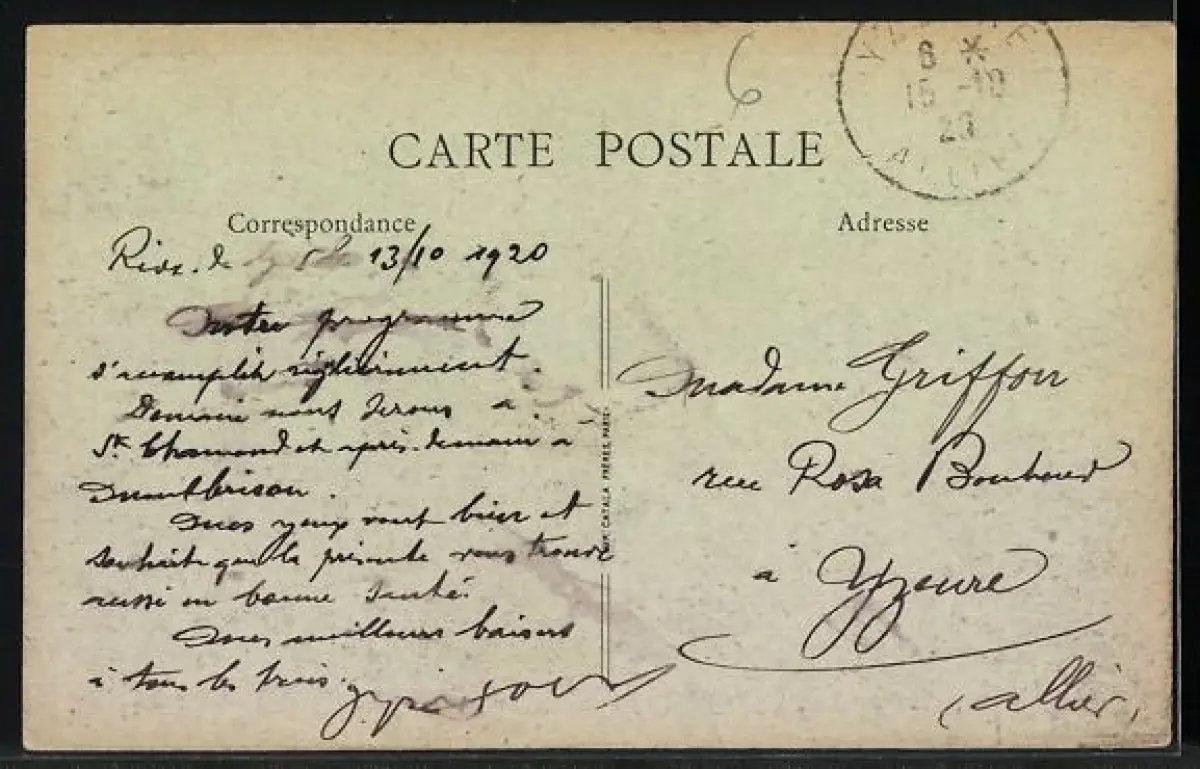 6
8 *
15 -10
ALLIER
CARTE POSTALE
Correspondance
Adresse
Rive de 13/10 1920
Notre programme
s'accomplit régulièrement.
Demain nous serons à
St Chamond et après-demain à
Montbrison.
Mes yeux vont bien et
souhaite que la présente vous trouve
aussi en bonne santé.
Mes meilleurs baisers
à tous les trois.
Madame Griffon
rue Rosa Bonheur
à Yzeure
(Allier)
CATALA FRÈRES, PARIS